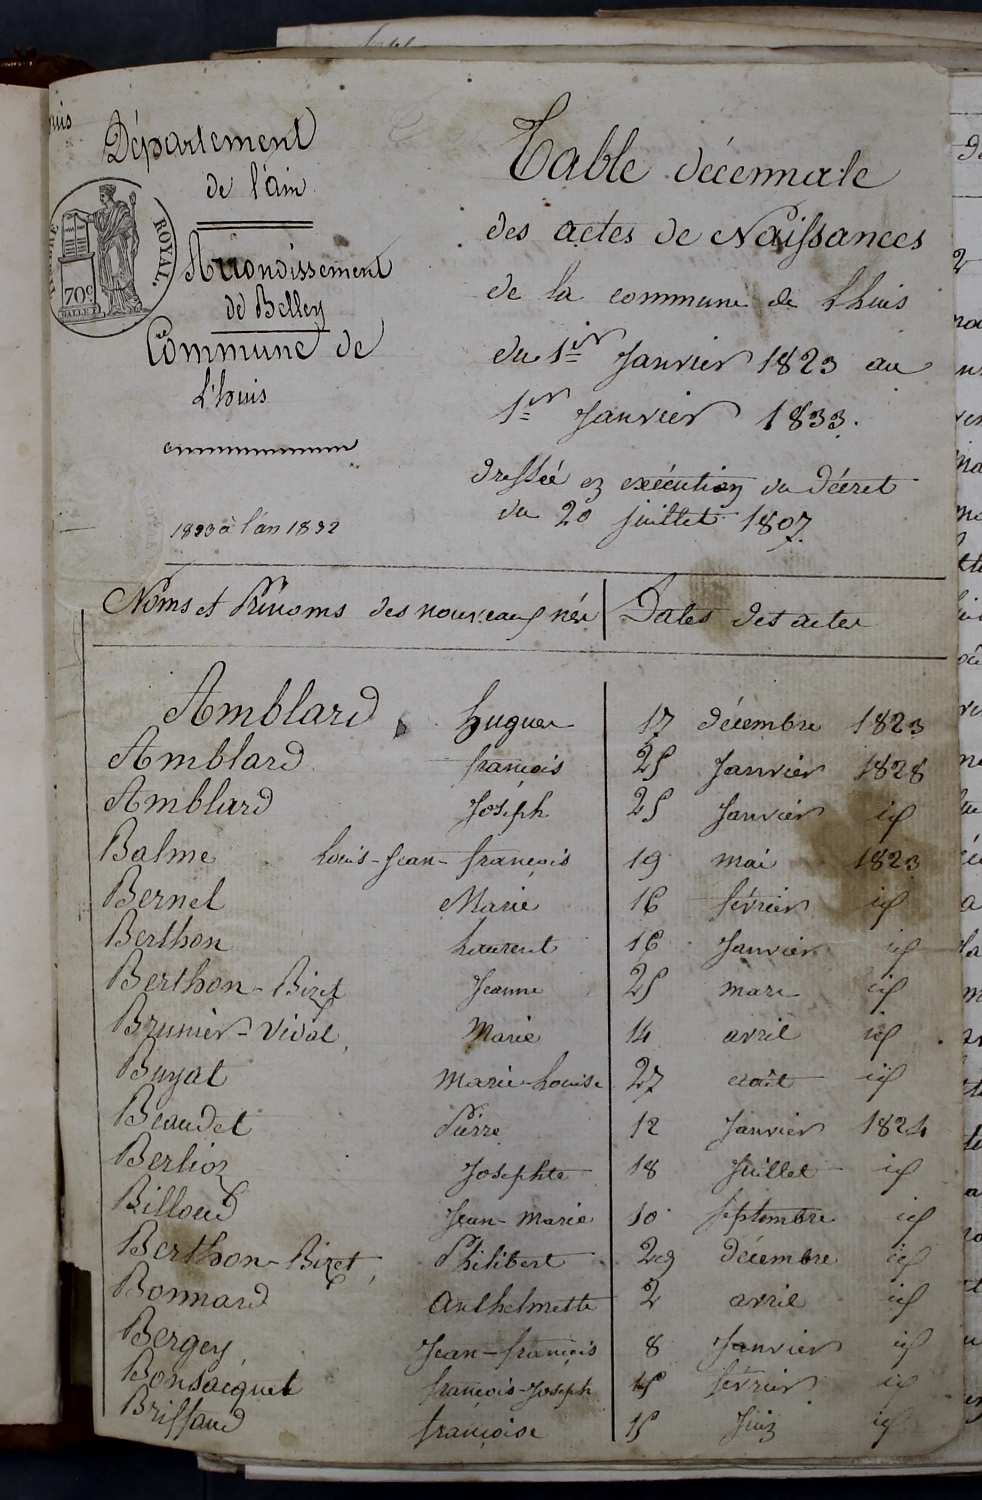 Département
de l'ain
TIMBRE ROYAL.
70c
Arrondissement
de Belley
Commune de
L'huis
1823 à l'an 1832
Table décennale
des actes de Naissances
de la commune de Lhuis
du 1er Janvier 1823 au
1er Janvier 1833.
dressée en exécution du Décret
du 20 juillet 1807.
Noms et Prénoms des nouveaux nés Dates des actes
Amblard hugues 17 décembre 1823
Amblard françois 25 Janvier 1828
Amblard Joseph 25 Janvier id
Balme Louis-Jean-françois 19 mai 1823
Bernet Marie 16 février id
Berthon Laurent 16 Janvier id
Berthon-Bizet Jeanne 25 mars id
Brunier-Vidal Marie 14 avril id
Buyat Marie-Louise 27 août id
Beaudet Pierre 12 Janvier 1824
Berlioz Josephte 18 Juillet id
Billoud Jean-marie 10 septembre id
Berthon-Bizet Philibert 29 décembre id
Bonnard Anthelmette 2 avril id
Bergey Jean-françois 8 Janvier id
Bonsacquet françois-Joseph 15 février id
Briffaud françoise 15 Juin id